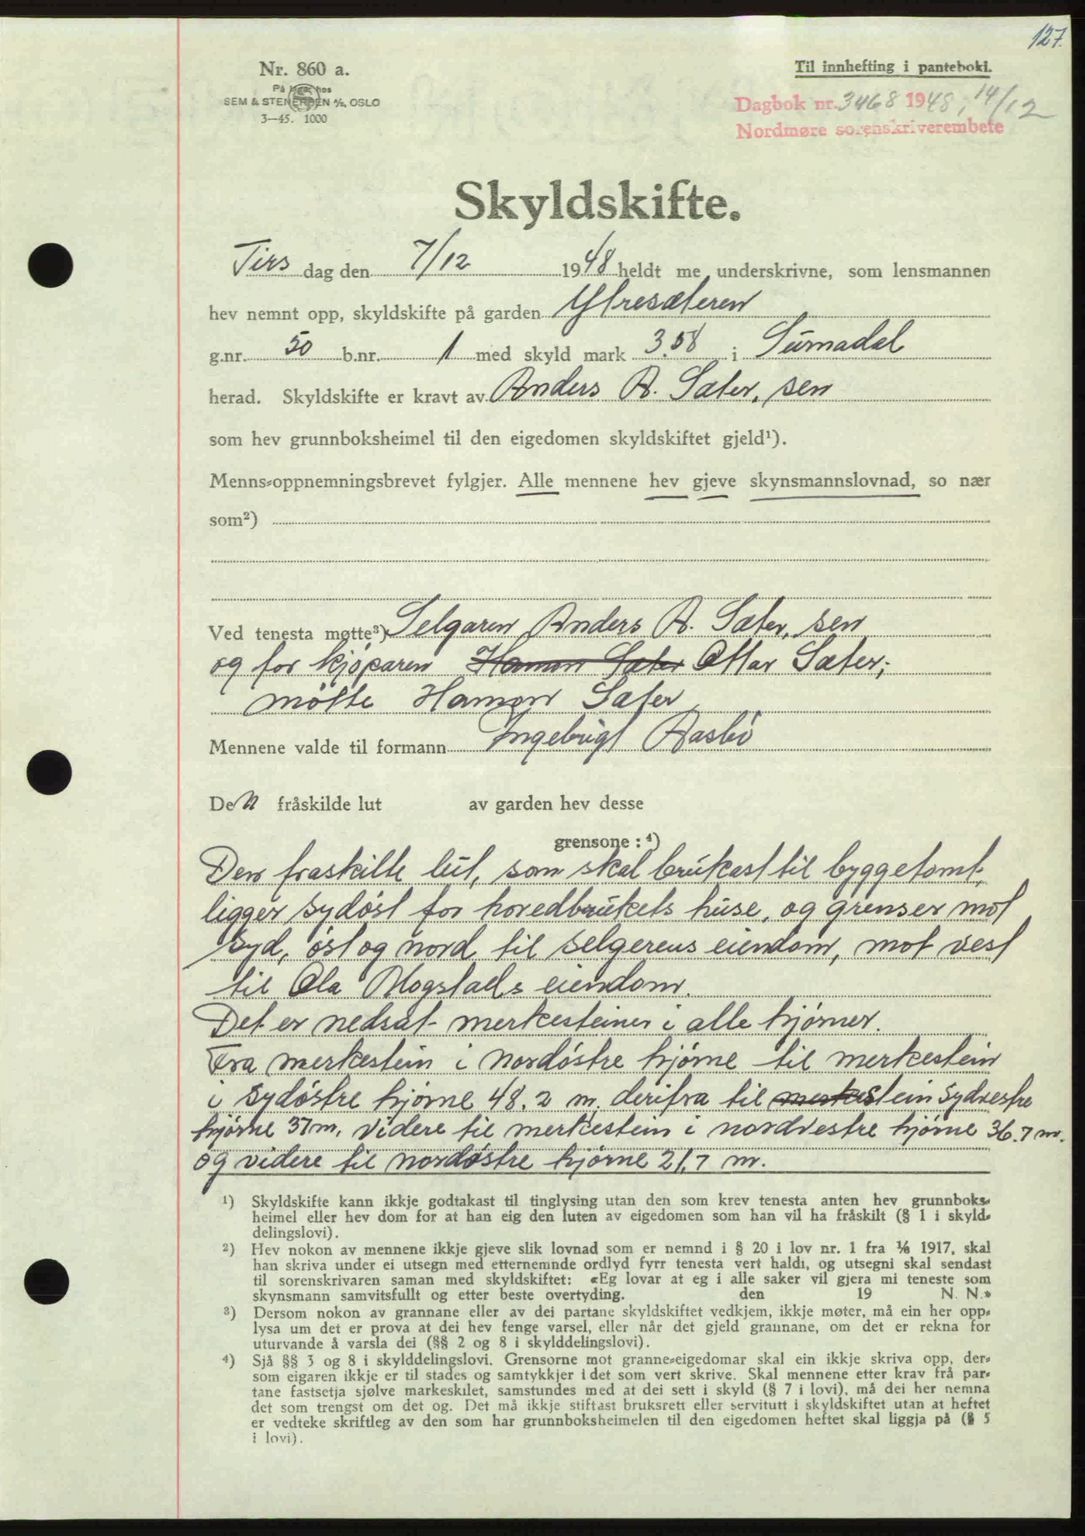 127.
Nr. 860 a.
På lager hos
SEM & STENERSEN A/S, OSLO
3—45. 1000
Til innhefting i panteboki.
Dagbok nr. 3468 1948, 14/12
Nordmøre sorenskriverembete
Skyldskifte.
Tirsdag den 7/12 1948 heldt me underskrivne, som lensmannen
hev nemnt opp, skyldskifte på garden Ytresæteren
g.nr. 50 b.nr. 1 med skyld mark 3.58 i Surnadal
herad. Skyldskifte er kravt av Anders A. Sæter, sen
som hev grunnboksheimel til den eigedomen skyldskiftet gjeld¹).
Menns-oppnemningsbrevet fylgjer. Alle mennene hev gjeve skynsmannslovnad, so nær
som²)
Ved tenesta møtte³) Selgaren Anders A. Sæter, sen
og for kjøparen Hamon Sæter Ottar Sæter;
møtte Hamon Sæter
Mennene valde til formann Ingebrigt Aasbø
Den fråskilde lut av garden hev desse
grensone :⁴)
Den fraskilte lut, som skal brukast til byggetomt,
ligger sydøst for hovedbrukets huse, og grenser mot
Syd, øst og nord til selgerens eiendom, mot vest
til Ola Mogstads eiendom.
Det er nedsat merkesteiner i alle hjørner.
Fra merkestein i nordøstre hjørne til merkestein
i sydøstre hjørne 48.2 m. derifra til merkestein sydvestre
hjørne 37 m, videre til merkestein i nordvestre hjørne 36.7 m.
og videre til nordøstre hjørne 21.7 m.
¹) Skyldskifte kann ikkje godtakast til tinglysing utan den som krev tenesta anten hev grunnboks-
heimel eller hev dom for at han eig den luten av eigedomen som han vil ha fråskilt (§ 1 i skyld-
delingslovi).
²) Hev nokon av mennene ikkje gjeve slik lovnad som er nemnd i § 20 i lov nr. 1 fra 1/6 1917, skal
han skriva under ei utsegn med etternemnde ordlyd fyrr tenesta vert haldi, og utsegni skal sendast
til sorenskrivaren saman med skyldskiftet: «Eg lovar at eg i alle saker vil gjera mi teneste som
skynsmann samvitsfullt og etter beste overtyding. den 19 N. N.»
³) Dersom nokon av grannane eller av dei partane skyldskiftet vedkjem, ikkje møter, må ein her opp-
lysa um det er prova at dei hev fenge varsel, eller når det gjeld grannane, om det er rekna for
uturvande å varsla dei (§§ 2 og 8 i skylddelingslovi).
⁴) Sjå §§ 3 og 8 i skylddelingslovi. Grensorne mot granne-eigedomar skal ein ikkje skriva opp, der-
som eigaren ikkje er til stades og samtykkjer i det som vert skrive. Skal mennene etter krav frå par-
tane fastsetja sjølve markeskilet, samstundes med at dei sett i skyld (§ 7 i lovi), må dei her nemna
det som trengst om det og. Det må ikkje stiftast bruksrett eller servitutt i skyldskiftet utan at heftet
er vedteke skriftleg av den som har grunnboksheimelen til den eigedomen heftet skal liggja på (§ 5
i lovi).